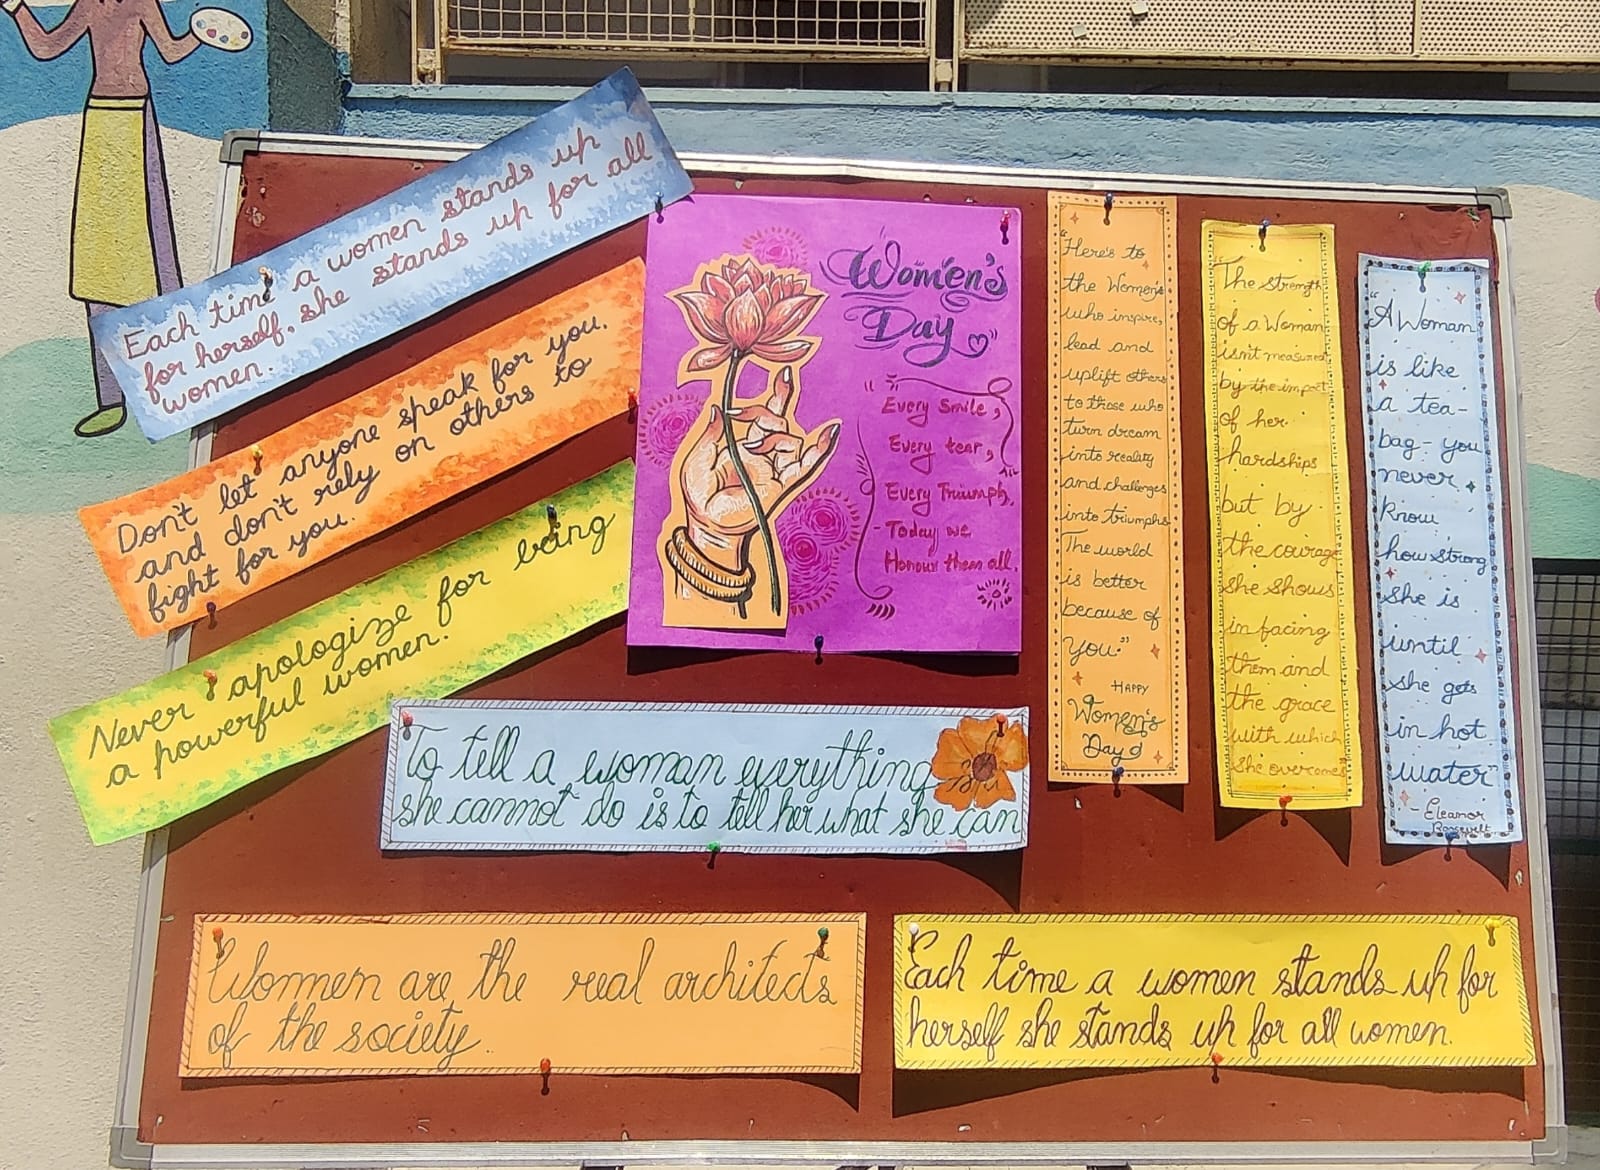 Each time a women stands up
for herself, she stands up for all
women.
Don't let anyone speak for you,
and don't rely on others to
fight for you.
Never apologize for being
a powerful women.
Women's
Day
"Every Smile,
Every tear,
Every Triumph,
Today we
Honour them all.
"
"Here's to
the Women's
who inspire,
lead and
uplift others
to those who
turn dream
into reality
and challenges
into triumphs
The world
is better
because of
You."
HAPPY
Women's
Day
"The strength
of a Woman
isn't measured
by the impact
of her
hardships
but by
the courage
she shows
in facing
them and
the grace
with which
she overcomes
"A Woman
is like
a tea-
bag- you
never
know
how strong
she is
until
she gets
in hot
water"
- Eleanor
Roosevelt
To tell a woman everything
she cannot do is to tell her what she can
Women are the real architects
of the society.
Each time a women stands up for
herself she stands up for all women.